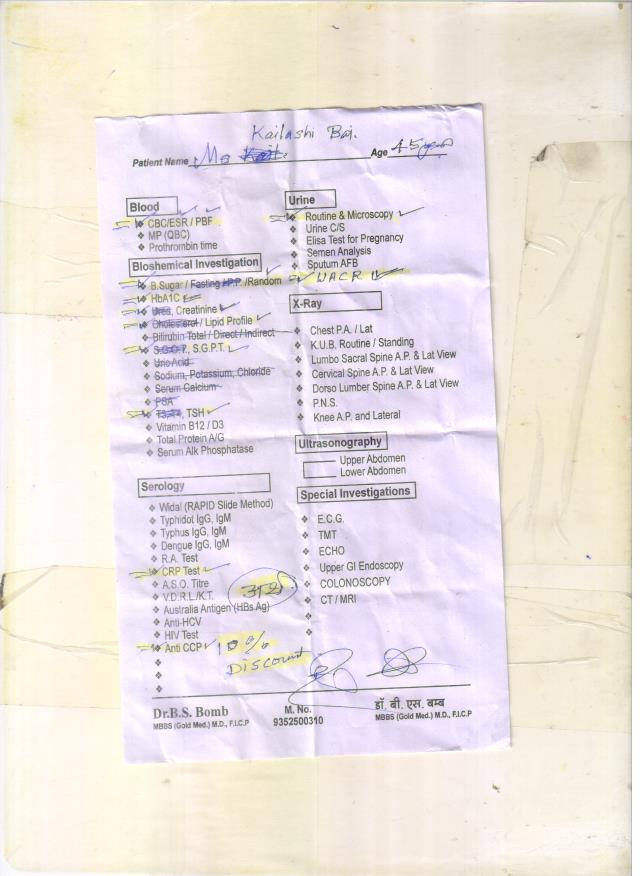 Kailashi Bai.
Patient Name Ms
Age 45
Blood
CBC/ESR / PBF
MP (QBC)
Prothrombin time
Bioshemical Investigation
B.Sugar / Fasting / P.P. /Random
HbA1C
Urea, Creatinine
Cholesterol / Lipid Profile
Bilirubin Total / Direct / Indirect
S.G.O.T., S.G.P.T.
Uric Acid
Sodium, Potassium, Chloride
Serum Calcium
PSA
T3,T4, TSH
Vitamin B12 / D3
Total Protein A/G
Serum Alk Phosphatase
Serology
Widal (RAPID Slide Method)
Typhidot IgG, IgM
Typhus IgG, IgM
Dengue IgG, IgM
R.A. Test
CRP Test
A.S.O. Titre
V.D.R.L./K.T.
Australia Antigen (HBs Ag)
Anti-HCV
HIV Test
Anti CCP
10%
Discount
Urine
Routine & Microscopy
Urine C/S
Elisa Test for Pregnancy
Semen Analysis
Sputum AFB
UACR
X-Ray
Chest P.A. / Lat
K.U.B. Routine / Standing
Lumbo Sacral Spine A.P. & Lat View
Cervical Spine A.P. & Lat View
Dorso Lumber Spine A.P. & Lat View
P.N.S.
Knee A.P. and Lateral
Ultrasonography
Upper Abdomen
Lower Abdomen
Special Investigations
E.C.G.
TMT
ECHO
Upper GI Endoscopy
COLONOSCOPY
CT / MRI
Dr.B.S. Bomb
MBBS (Gold Med.) M.D., F.I.C.P
M. No.
9352500310
डॉ. बी. एस. बम्ब
MBBS (Gold Med.) M.D., F.I.C.P